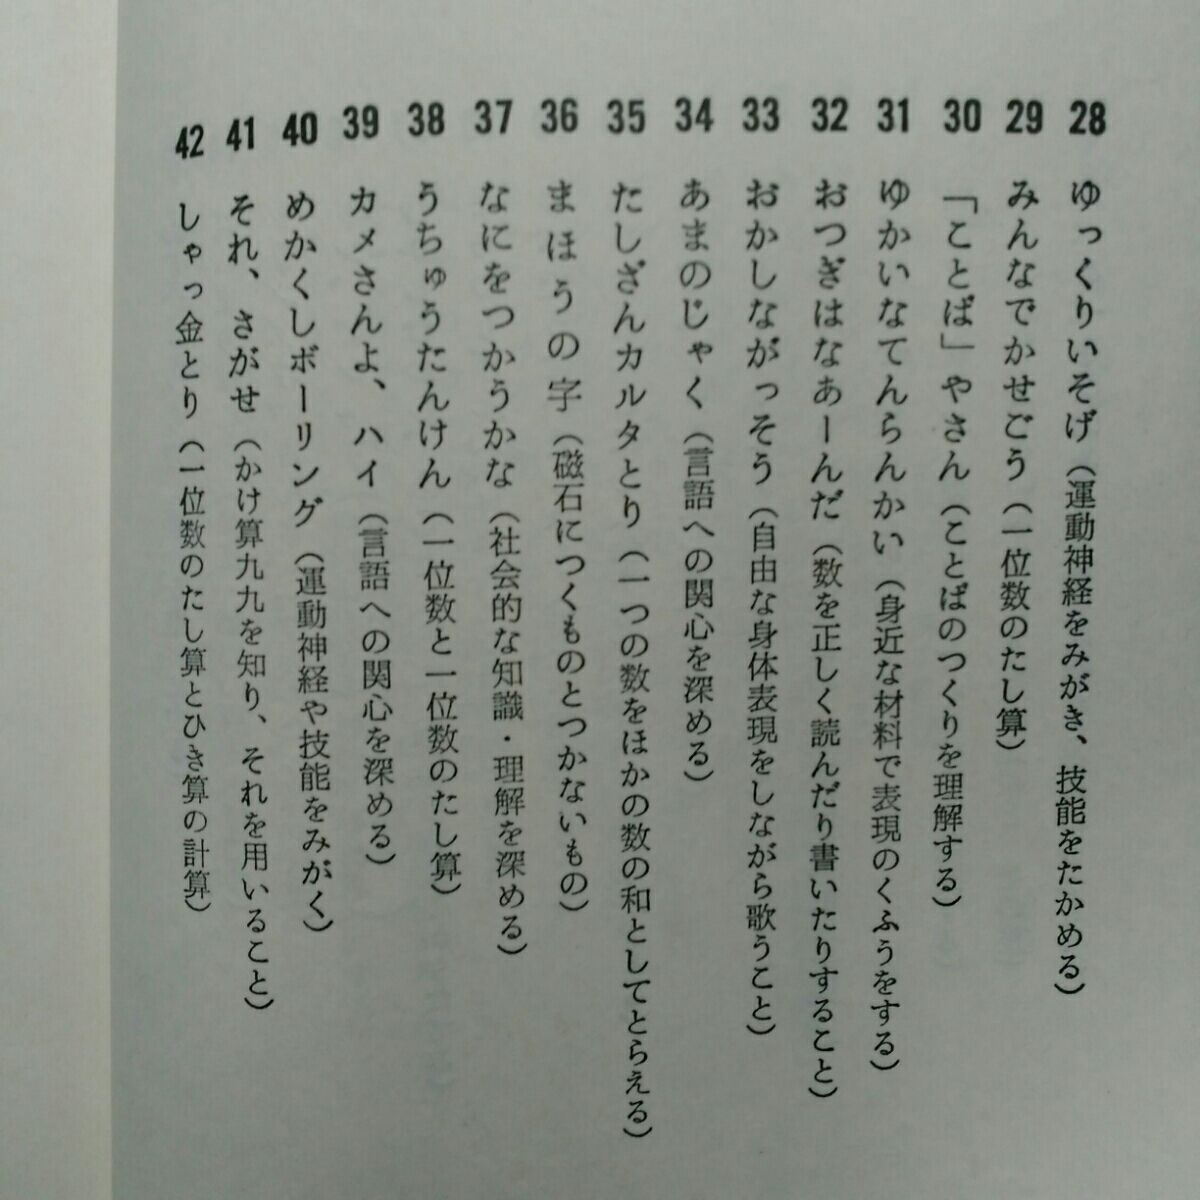 28 ゆっくりいそげ（運動神経をみがき、技能をたかめる）
29 みんなでかせごう（一位数のたし算）
30 「ことば」やさん（ことばのつくりを理解する）
31 ゆかいなてんらんかい（身近な材料で表現のくふうをする）
32 おつぎはなあーんだ（数を正しく読んだり書いたりすること）
33 おかしながっそう（自由な身体表現をしながら歌うこと）
34 あまのじゃく（言語への関心を深める）
35 たしざんカルタとり（一つの数をほかの数の和としてとらえる）
36 まほうの字（磁石につくものとつかないもの）
37 なにをつかうかな（社会的な知識・理解を深める）
38 うちゅうたんけん（一位数と一位数のたし算）
39 カメさんよ、ハイ（言語への関心を深める）
40 めかくしボーリング（運動神経や技能をみがく）
41 それ、さがせ（かけ算九九を知り、それを用いること）
42 しゃっ金とり（一位数のたし算とひき算の計算）